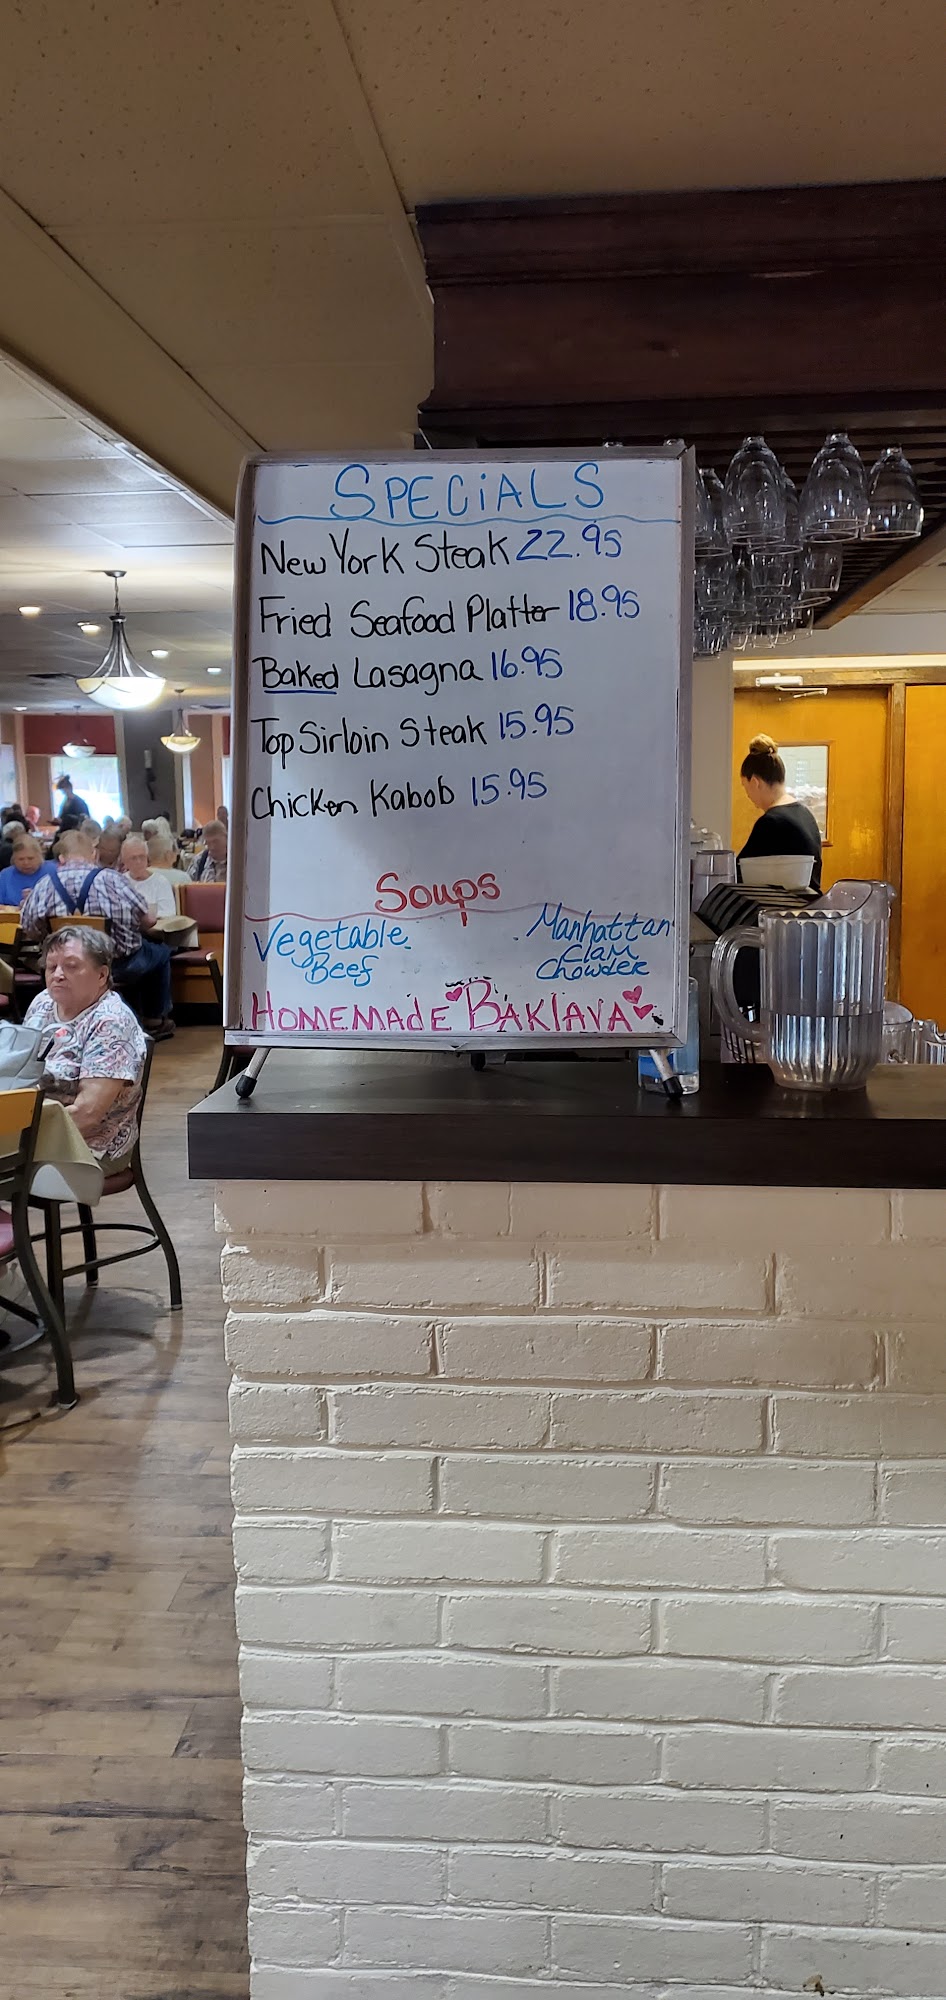 SPECiALS
New York Steak 22.95
Fried Seafood Platter 18.95
Baked Lasagna 16.95
Top Sirloin Steak 15.95
Chicken Kabob 15.95
Soups
Vegetable Beef
Manhattan Clam Chowder
HOMEMAdE BAKlAVA